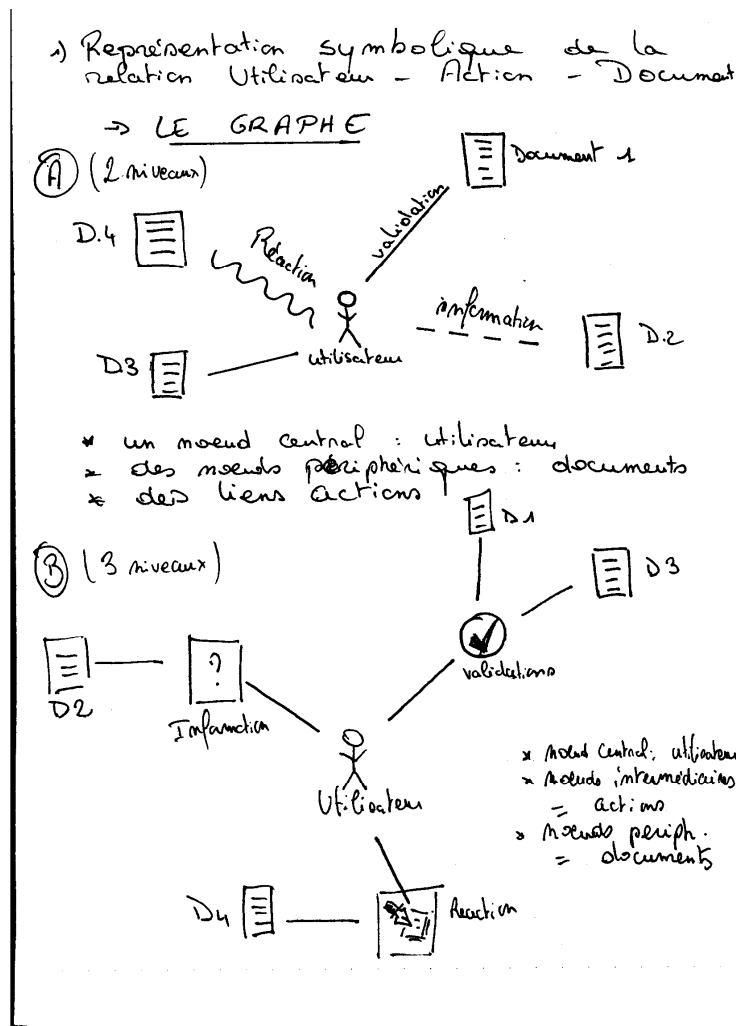 1) Représentation symbolique de la
relation Utilisateur - Action - Document
→ LE GRAPHE
A (2 niveaux)
Document 1
D.4
Réaction
validation
information
D.2
D.3
utilisateur
* un noeud central : utilisateur
* des noeuds périphériques : documents
* des liens actions
D1
B (3 niveaux)
D3
validations
?
D2
Information
Utilisateur
* noeud central : utilisateur
* noeuds intermédiaires
= actions
* noeuds périph.
= documents
D4
Reaction